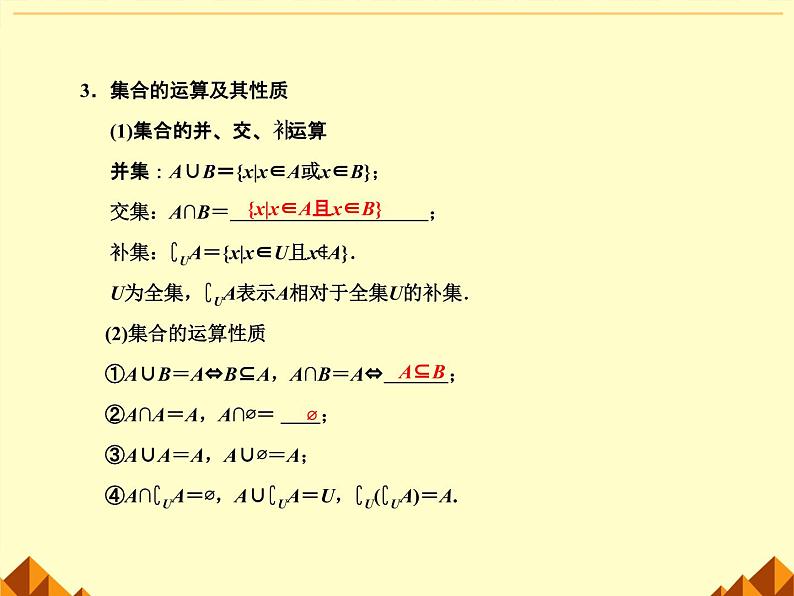 3．集合的运算及其性质
(1)集合的并、交、补运算
并集：A∪B＝{x|x∈A或x∈B}；
交集：A∩B＝{x|x∈A且x∈B}；
补集：∁UA＝{x|x∈U且x∉A}．
U为全集，∁UA表示A相对于全集U的补集．
(2)集合的运算性质
①A∪B＝A⇔B⊆A，A∩B＝A⇔A⊆B；
②A∩A＝A，A∩∅＝∅；
③A∪A＝A，A∪∅＝A；
④A∩∁UA＝∅，A∪∁UA＝U，∁U(∁UA)＝A.